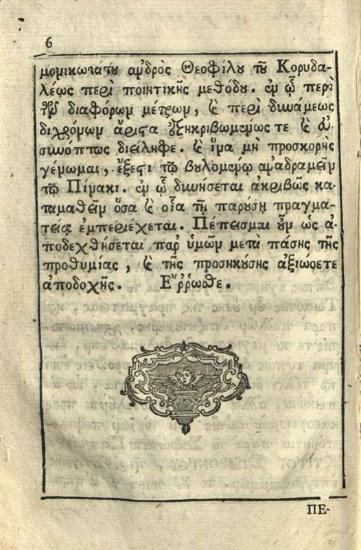 6
μομικωτάτου ἀνδρὸς Θεοφίλου τοῦ Κορυδα-
λέως περὶ ποιητικῆς μεθόδου. ἐν ᾧ περὶ
τῶν διαφόρων μέτρων, καὶ περὶ δυνάμεως
διχρόνων ἄριστα ἐξηκριβωμένως τε καὶ
διείληφε. καὶ ἵνα μὴ προσκορὴς
γένωμαι, ἔξεστι τῷ βουλομένῳ ἀναδραμεῖν
τῷ Πίνακι. ἐν ᾧ δυνήσεται ἀκριβῶς κα-
ταμαθεῖν ὅσα καὶ οἷα τῇ παρούσῃ πραγμα-
τείᾳ ἐμπεριέχεται. Πέπεισμαι οὖν ὡς ἀ-
ποδεχθήσεται παρ' ὑμῶν μετὰ πάσης τῆς
προθυμίας, καὶ τῆς προσηκούσης ἀξιώσετε
ἀποδοχῆς. Ἔῤῥωσθε.
ΠΕ-